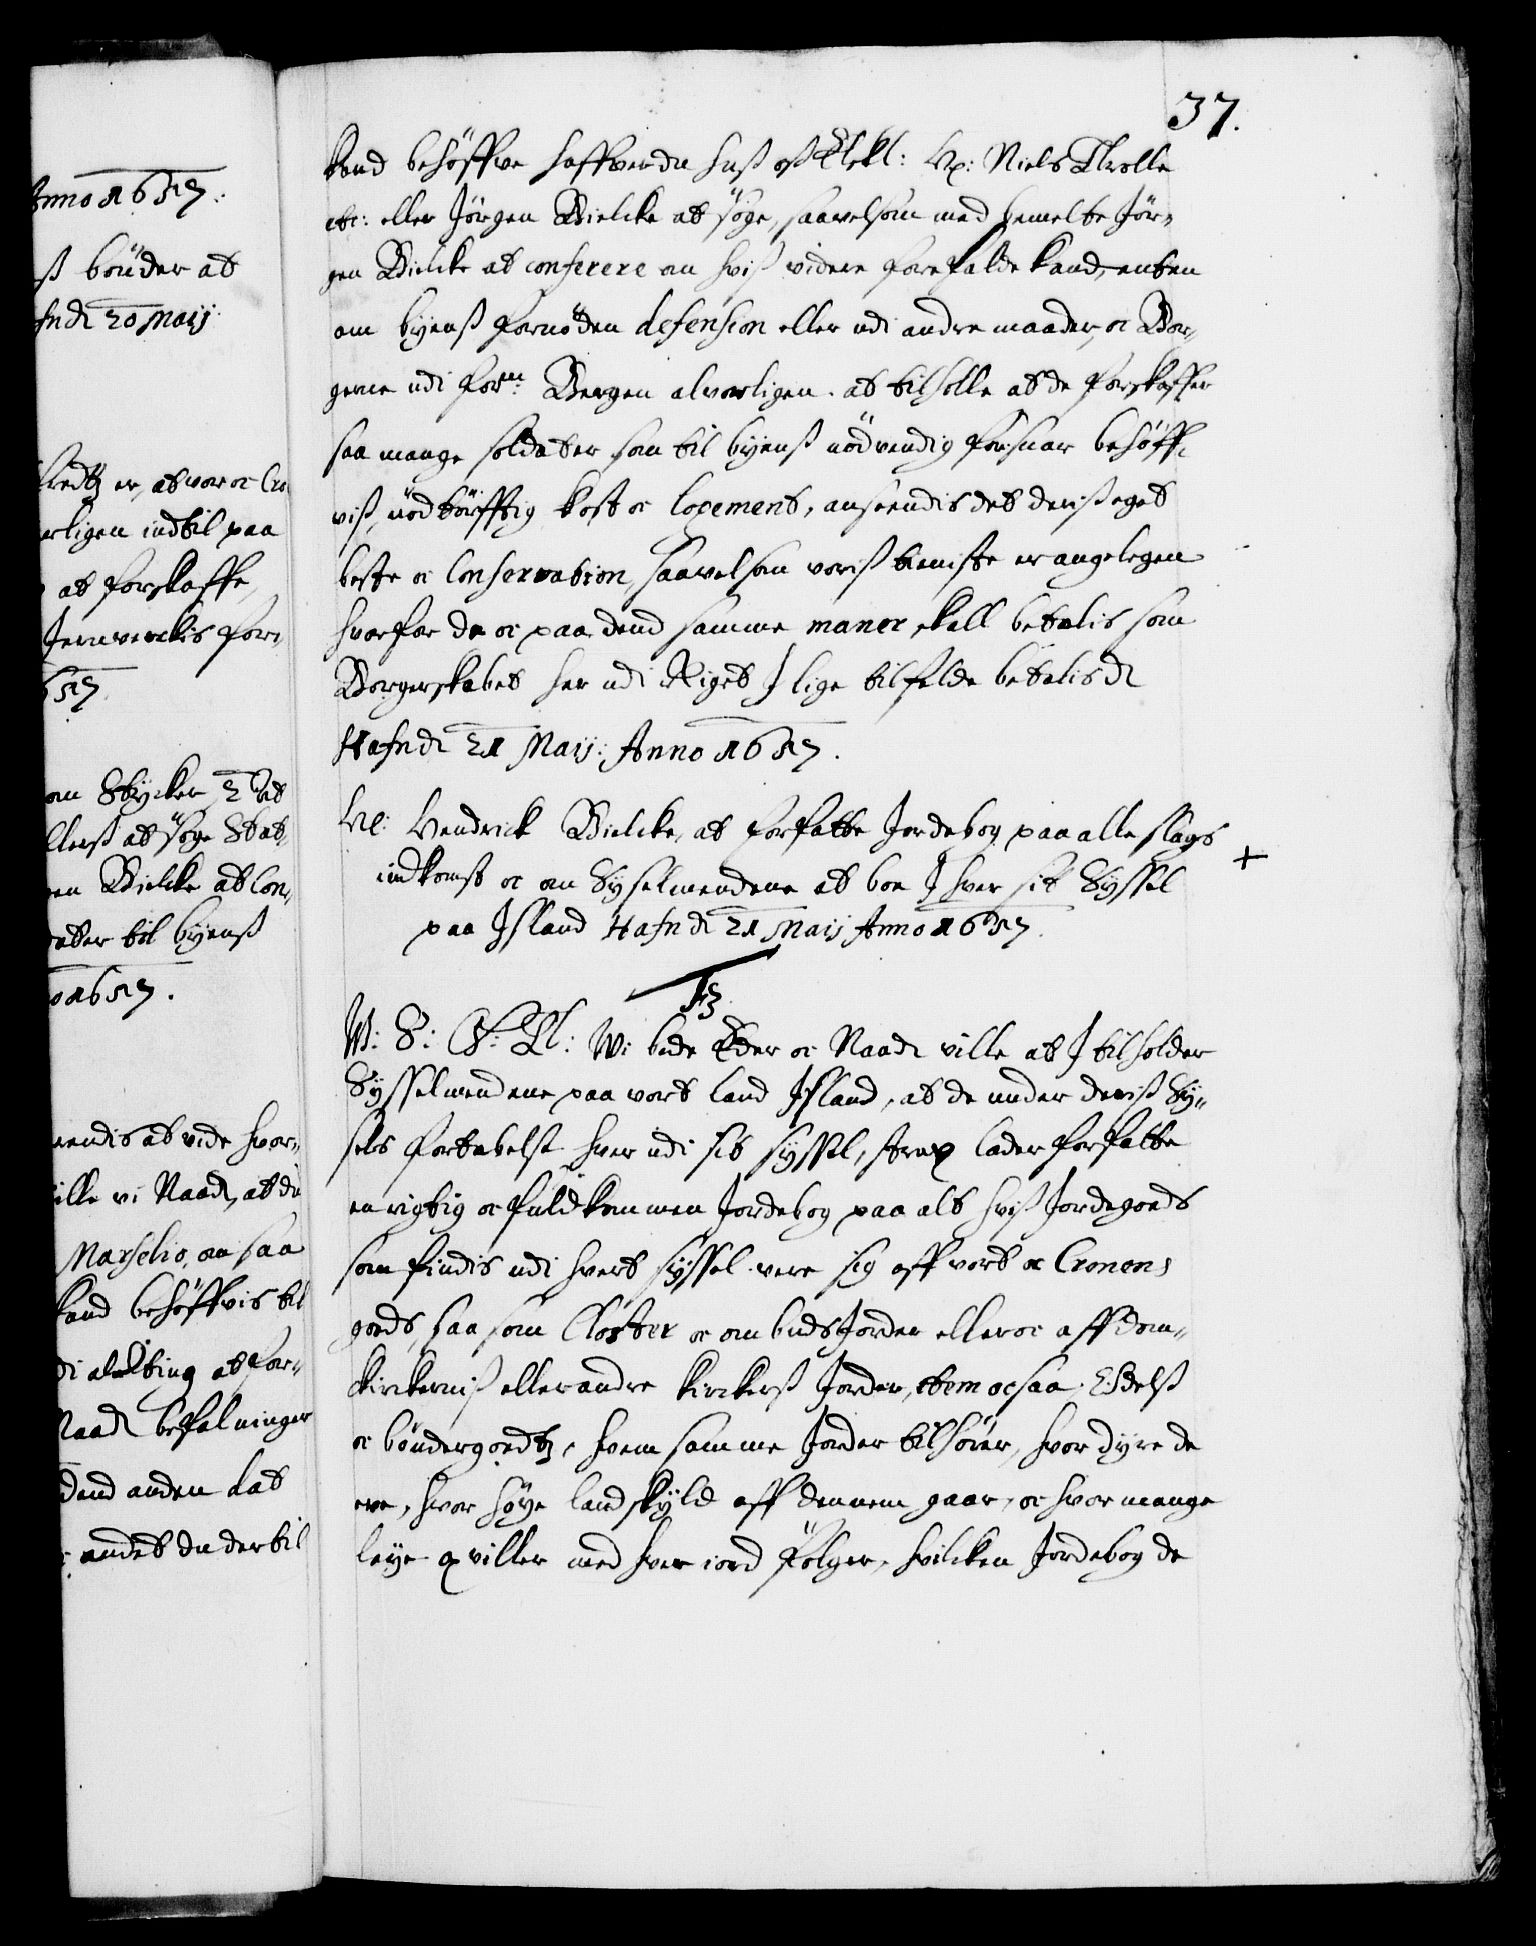 37.
kand behöffve haffver du hos oß Elskl: Hr: Niels Trolle
etc: eller Jörgen Bielcke at söge, saavelsom med bemelte Jör-
gen Bielcke at conferere om hviß videre forefalde kand, enten
om byenß fornöden defension eller udi andre maader, oc Bor-
gerne udi forne: Bergen alvorligen at tilholle at de forskaffer
saa mange soldater som til byenß nödvendig forsvar behöff-
viß, nödtörfftig kost oc logement, anseendis det deriß eget
beste oc Conservation, saavelsom voriß tieniste er angelegen
hvorfor de oc paa dend samme maner skall betalis som
Borgerskabet her udi Riget I lige tilfelde betalis
Hafn 21 Maij: Anno 1657.
Hr: Hendrick Bielcke, at forfatte Jordebog paa alle slags
indkomst oc om Syselmendene at boe I hver sit Syssel
paa Island Hafn 21 Maij Anno 1657.
+
F3.
W: S: G: T: Wi bede Eder oc Naadi ville at I tilholder
Sysselmendene paa vort land Island, at de under deriß Sy-
sels fortabelse hver udi sit syssel, strax lader forfatte
en rigtig oc fuldkommen Jordebog paa alt hviß Jordegods
som findis udi hvert syssel vere sig aff vort oc Cronens
gods, saa som Closter oc ombuds Jorder eller oc aff Dom-
kirkerniß eller andre kirckerß Jorder, item ocsaa Edelß
oc böndergodtz, hvem samme Jorder tilhörer, hvor dyre de
ere, hvor höye landskyld aff dennem gaar, oc hvor mange
leye qviller med hver iord fölger, hvilcken Jordebog de
Anno 1657:
ß bönder at
20 Maij
at vor oc Cro
erligen indtil paa
at forskaffe,
Jernverckis for-
657.
om Stycker
at söge Stat-
en Bielcke at Con-
dater til byenß
o 1657.
eendis at vide hvor-
ille vi Naadi, at du
Marselio, om saa
kand behöffvis til
at for-
Naadi befalninger
dend anden dat
andet du der til